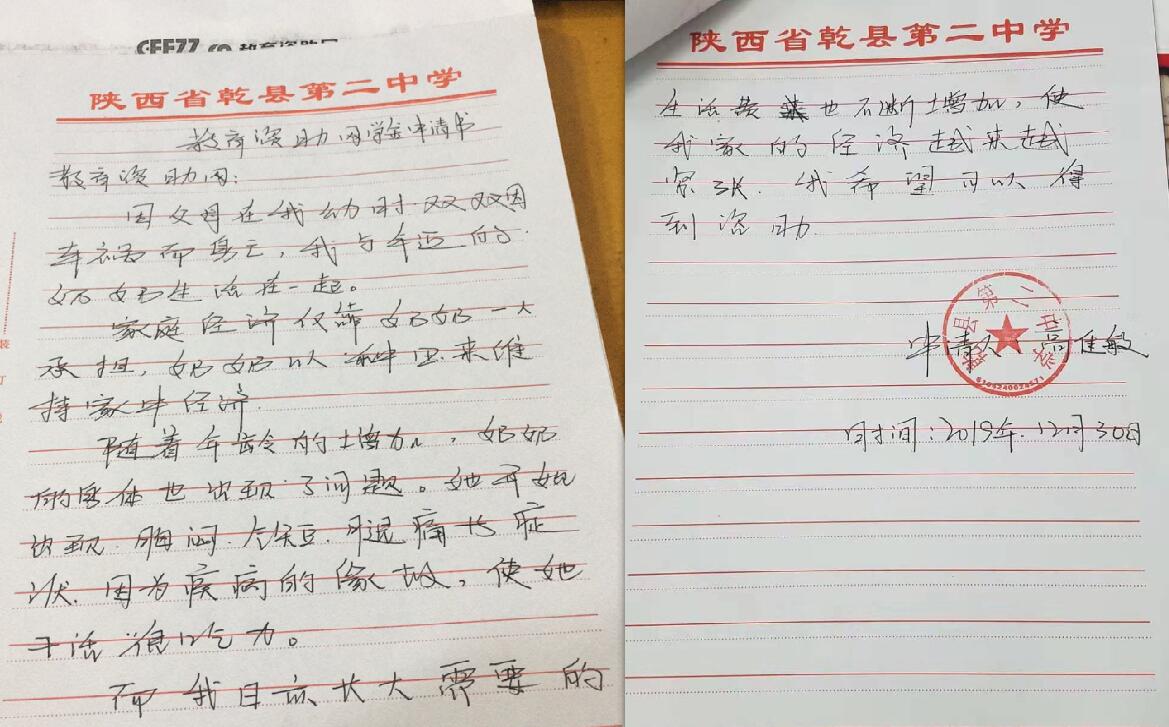 CFF77.co 教育资助网
陕西省乾县第二中学
教育资助网学金申请书
教育资助网:
因父母在我幼时双双因
车祸而身亡，我与年迈的
奶奶生活在一起。
家庭经济仅靠奶奶一人
承担，奶奶以种田来维
持家中经济.
随着年龄的增加，奶奶
的身体也出现了问题。她开始
出现.胸闷.气短.腿痛等症
状.因为疾病的缘故，使她
干活很吃力。
而我日益长大需要的
陕西省乾县第二中学
生活费也不断增加，使
我家的经济越来越
紧张.我希望可以得
到资助.
申请人:高佳敏
乾县第二中学
时间:2019年.12月30日